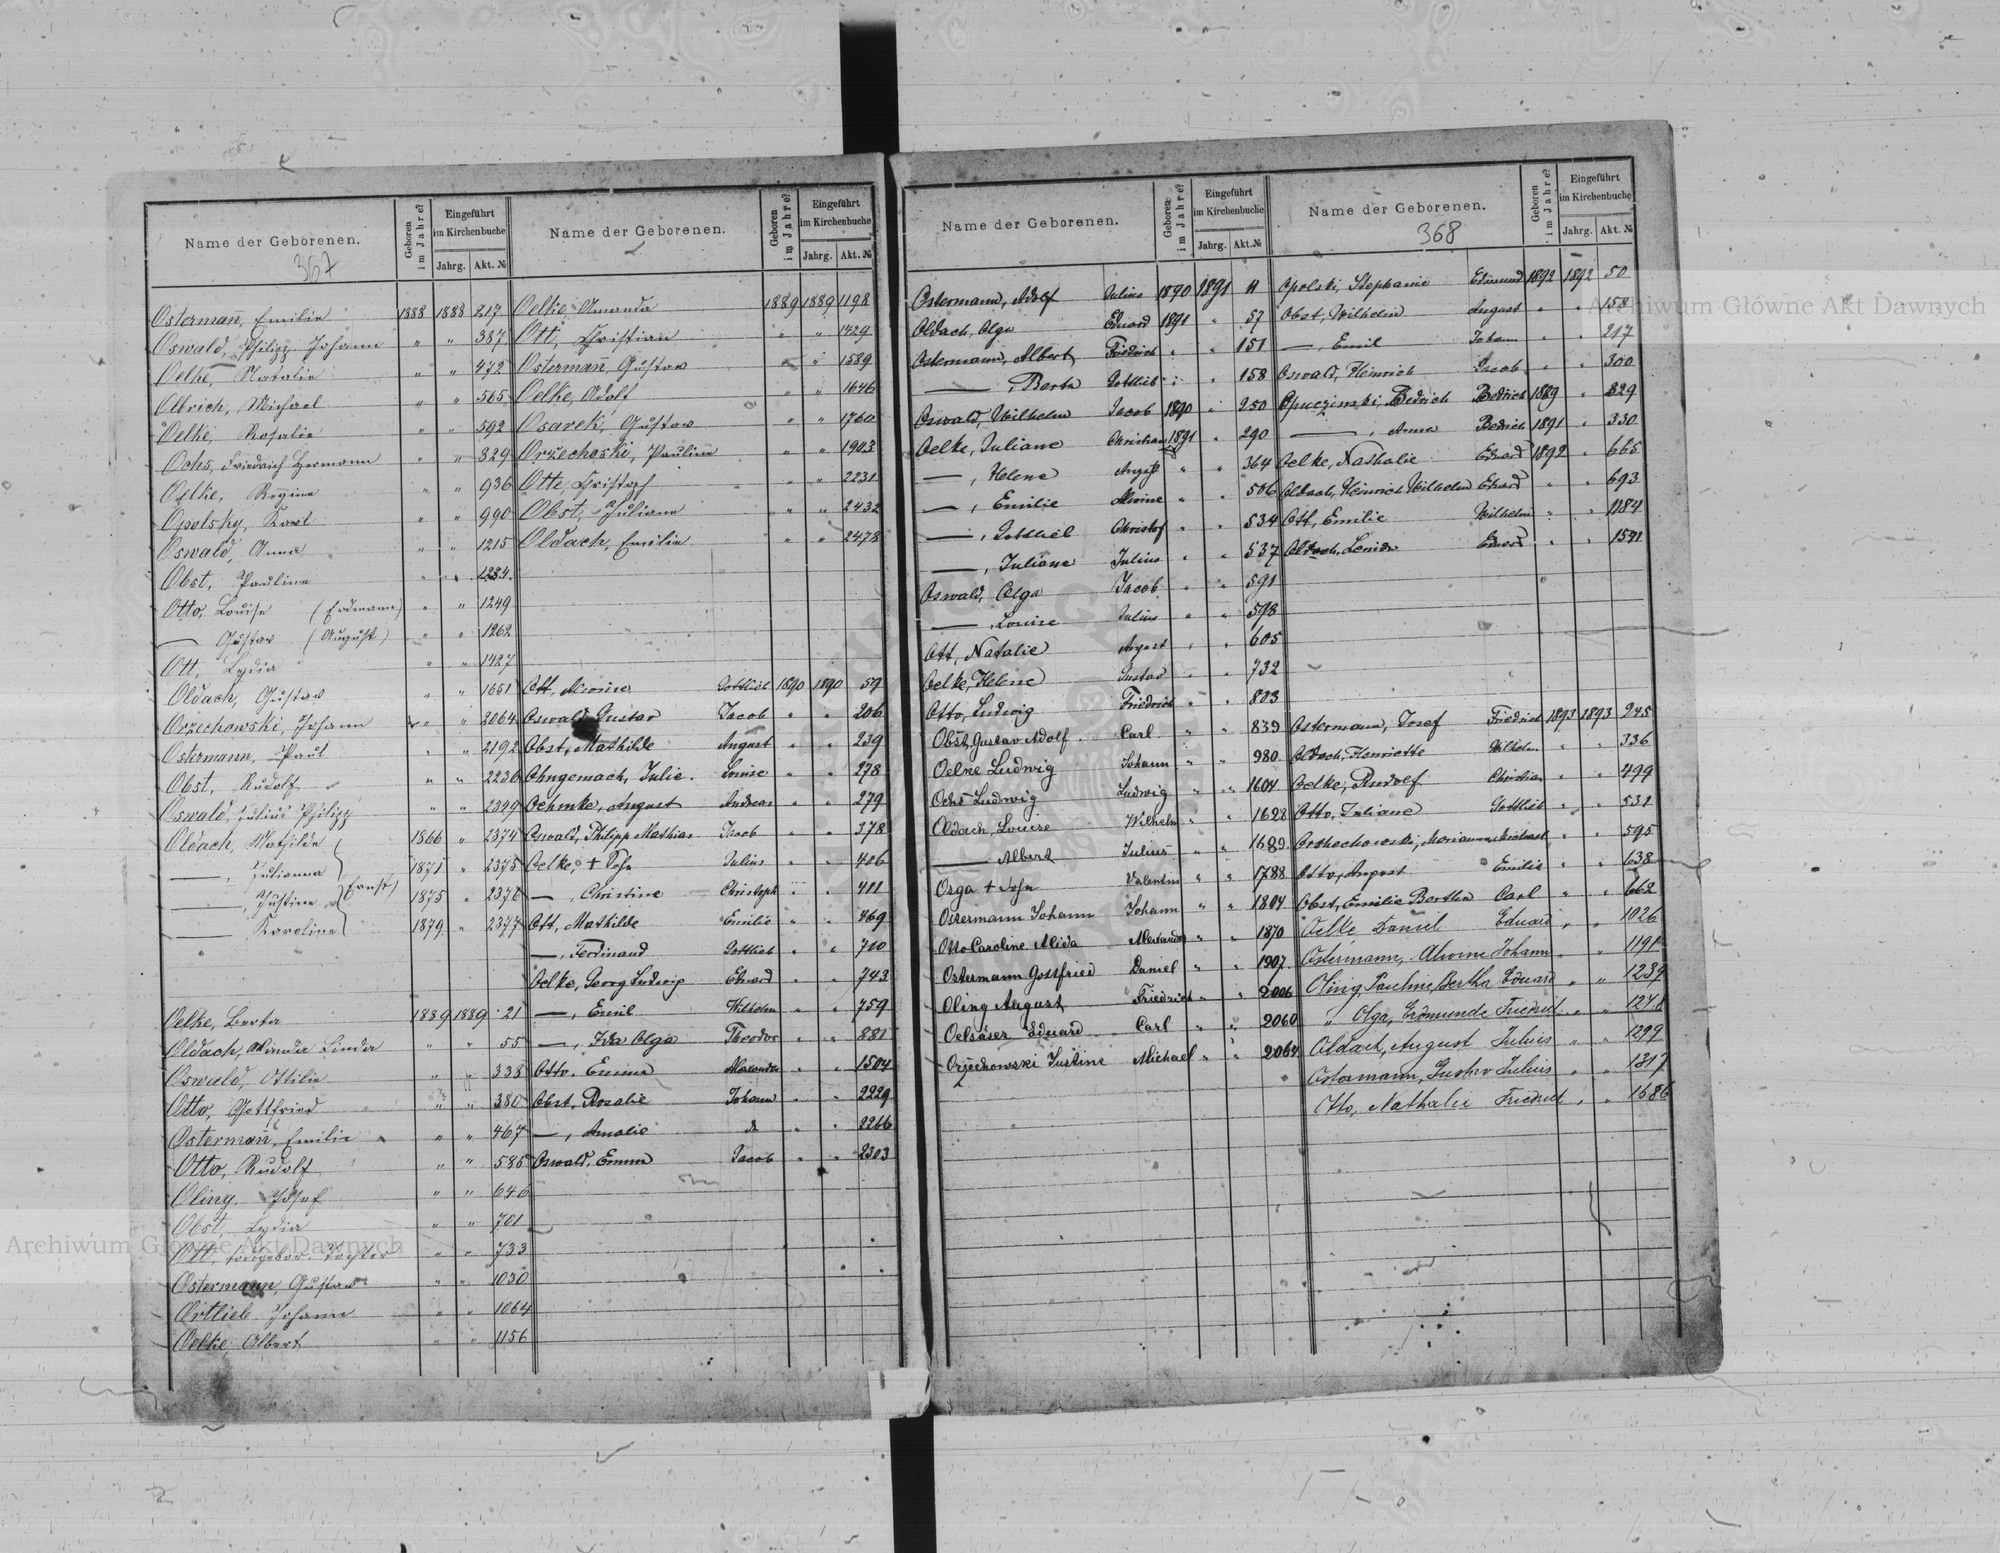 Name der Geborenen.
367
Geboren im Jahre?
Eingeführt im Kirchenbuche
Jahrg. Akt. №
Osterman, Emilie 1888 1888 217
Oswald, Philipp Johann " " 387
Oelke, Natalie " " 472
Olbrich, Michael " " 565
Oelke, Rosalie " " 592
Ochs, Friedrich Hermann " " 829
Oelke, Regine " " 936
Opolsky, Karl " " 990
Oswald, Anna " " 1215
Obst, Pauline " " 1234
Otto, Louise (Erdmann) " " 1249
— Gustav (August) " " 1262
Ott, Lydia " " 1427
Oldach, Gustav " " 1651
Orzechowski, Johann " " 2064
Ostermann, Paul " " 2192
Obst, Rudolf " " 2236
Oswald, Julius Philipp " " 2349
Oldach, Mathilde 1866 " 2374
—, Julianna 1871 " 2375
—, Justine (Ernst) 1875 " 2376
— Karoline 1879 " 2377
Oelke, Berta 1889 1889 21
Oldach, Wanda Linda " " 55
Oswald, Ottilie " " 338
Otto, Gottfried " " 380
Ostermañ, Emilie " " 467
Otto, Rudolf " " 585
Oling, Josef " " 646
Obst, Lydia " " 701
Ott, todtgebor. Tochter " " 733
Ostermann, Gustav " " 1030
Ortlieb Johann " " 1064
Oelke, Albert " " 1156
Name der Geborenen.
Geboren im Jahre?
Eingeführt im Kirchenbuche
Jahrg. Akt. №
Oelke, Amanda 1889 1889 1198
Ott, Christian " " 1429
Ostermañ, Gustav " " 1589
Oelke, Adolf " " 1646
Osarek, Gustav " " 1760
Orzechoski, Pauline " " 1943
Otto, Christoph " " 2231
Obst, Juliane " " 2432
Oldach, Emilie " " 2478
Ott, Gottlieb 1890 1890 59
Oswald, Gustav Jacob " " 206
Obst, Mathilde August " " 239
Ohngemach, Julie. Louise " " 278
Oehmke, August Andreas " " 279
Oswald, Philipp Mathias Jacob " " 378
Oelke, + Sohn Julius " " 406
—, Christine Christoph " " 411
Ott, Mathilde Emilie " " 469
—, Ferdinand Gottlieb " " 710
Oelke, Georg Ludwig Eduard " " 743
—, Emil Wilhelm " " 759
—, Ida Olga Theodor " " 881
Otto, Emma Alexander " " 1504
Obst, Rosalie Johann " " 2229
—, Amalie do " " 2266
Oswald, Emma Jacob " " 2303
Name der Geborenen.
Geboren im Jahre?
Eingeführt im Kirchenbuche
Jahrg. Akt. №
Ostermann, Adolf Julius 1890 1891 11
Oldach, Olga Eduard 1891 " 57
Ostermann, Albert Friedrich " " 151
—, Berta Gottlieb " " 158
Oswald, Wilhelm Jacob 1890 " 250
Oelke, Juliane Christian 1891 " 290
—, Helene August " " 364
—, Emilie Alwine " " 506
—, Gottlieb Christof " " 534
—, Juliane Julius " " 537
Oswald, Olga Jacob " " 591
—, Louise Julius " " 598
Ott, Natalie August " " 605
Oelke, Helene Gustav " " 732
Otto, Ludwig Friedrich " " 803
Obst, Gustav Adolf Carl " " 839
Oelke Ludwig Johann " " 980
Ochs Ludwig Ludwig " " 1604
Oldach, Louise Wilhelm " " 1628
— Albert Julius " " 1689
Osga + Sohn Valentin " " 1788
Ostermann Johann Johann " " 1804
Otto Caroline Alida Alexander " " 1870
Ostermann Gottfried Daniel " " 1907
Oling August Friedrich " " 2006
Oelsäser Eduard Carl " " 2060
Orzechowski Justine Michael " " 2064
Name der Geborenen.
368
Geboren im Jahre?
Eingeführt im Kirchenbuche
Jahrg. Akt. №
Opolski, Stephanie Edmund 1892 1892 50
Obst, Wilhelm August " " 158
—, Emil Johann " " 217
Oswald, Heinrich Jacob " " 300
Opuczinski, Bedrich Bedrich 1889 " 329
—, Anna Bedrich 1891 " 330
Oelke, Nathalie Eduard 1892 " 665
Oldach, Heinrich Wilhelm Eduard " " 693
Ott, Emilie Wilhelm " " 1184
Oldach, Eduard " " 1591
Ostermann, Josef Friedrich 1893 1893 245
Oldach, Henriette Wilhelm " " 336
Oelke, Rudolf Christian " " 499
Otto, Juliane Gottlieb " " 531
Orzhechowski, Marianna Michael " " 595
Otto, August Emilie " " 638
Obst, Emilie Bertha Carl " " 662
Oelke, Daniel Eduard " " 1026
Ostermann, Alwine Johann " " 1191
Oling, Pauline Bertha Eduard " " 1239
" Olga, Edmunde Friedrich " " 1278
Oldach, August Julius " " 1299
Ostermann, Gustav Julius " " 1317
Otto, Nathalie Friedrich " " 1686
Archiwum Główne Akt Dawnych
Archiwum Główne Akt Dawnych